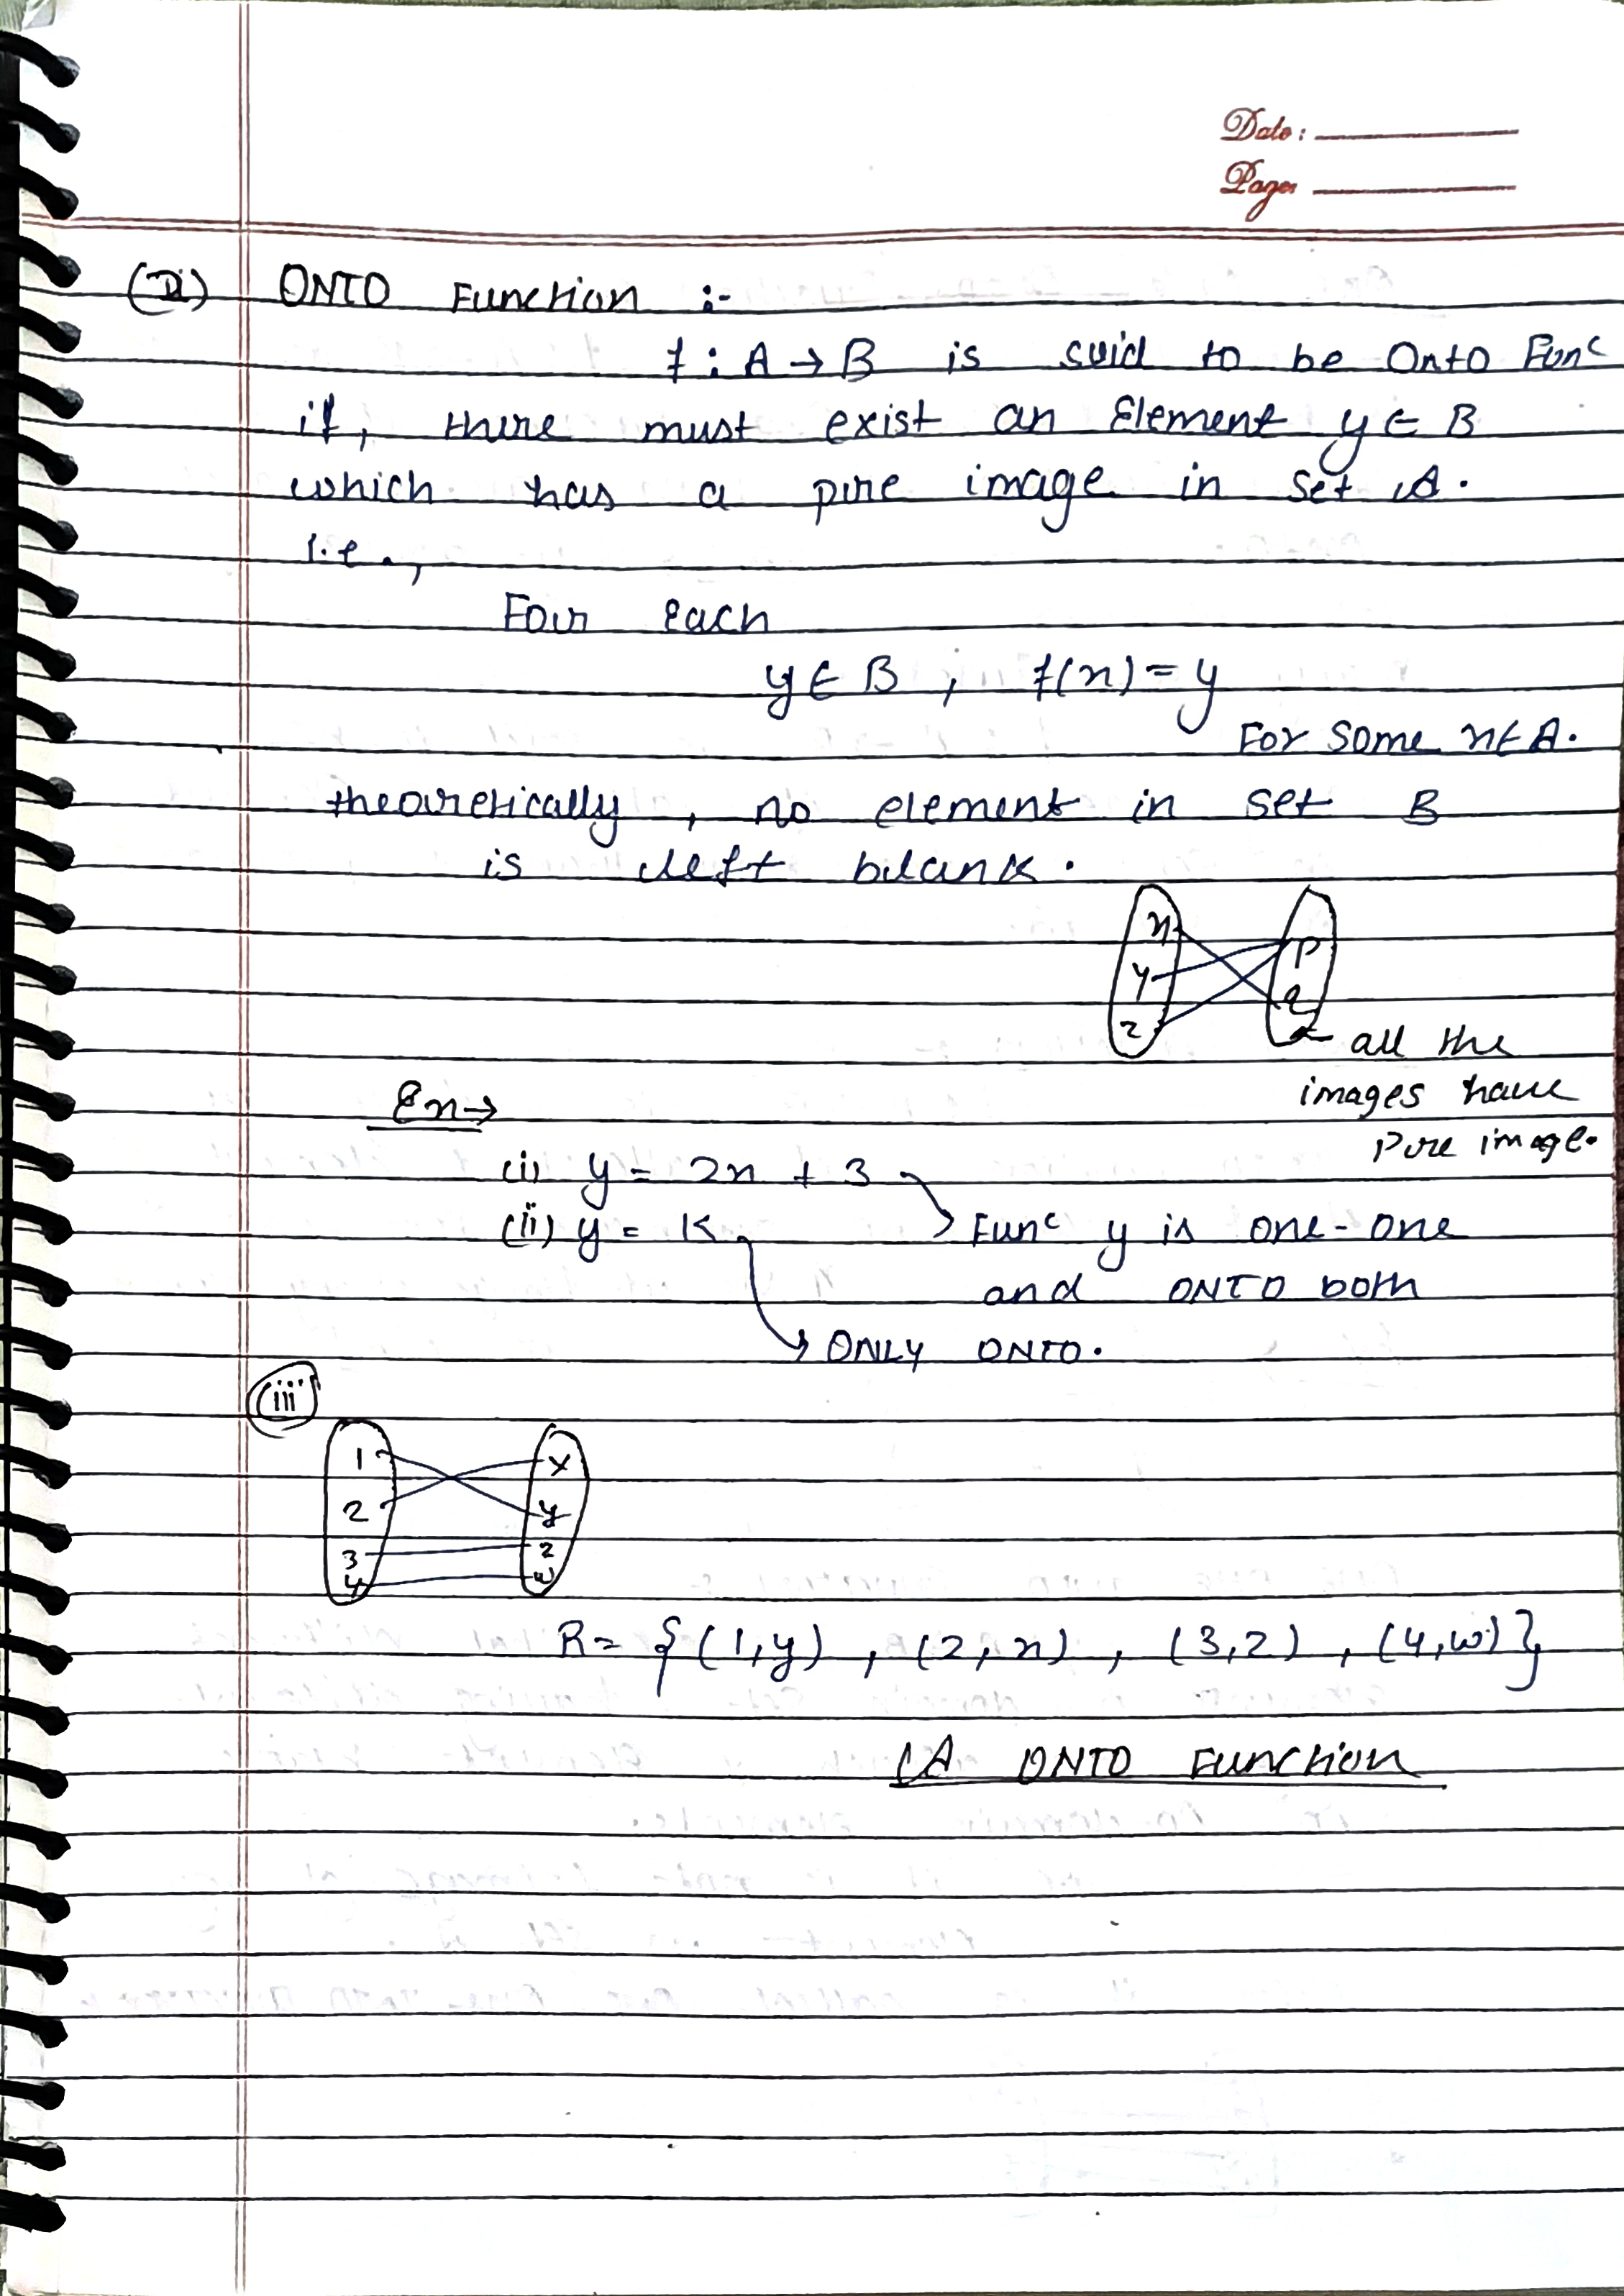 Date:
Page:
(II) ONTO Function :-
f : A → B is said to be Onto Func
if, there must exist an Element y ∈ B
which has a pre image in set A.
i.e.,
For each
y ∈ B , f(x) = y
For some x ∈ A.
theoretically, no element in set B
is left blank.
x p
y q
z
all the
images have
Pre image.
Ex→
(i) y = 2x + 3
(ii) y = K Func y is one-one
and ONTO both
ONLY ONTO.
(iii)
1 x
2 y
3 z
4 w
R = {(1,y) , (2,x) , (3,z) , (4,w)}
A ONTO Function